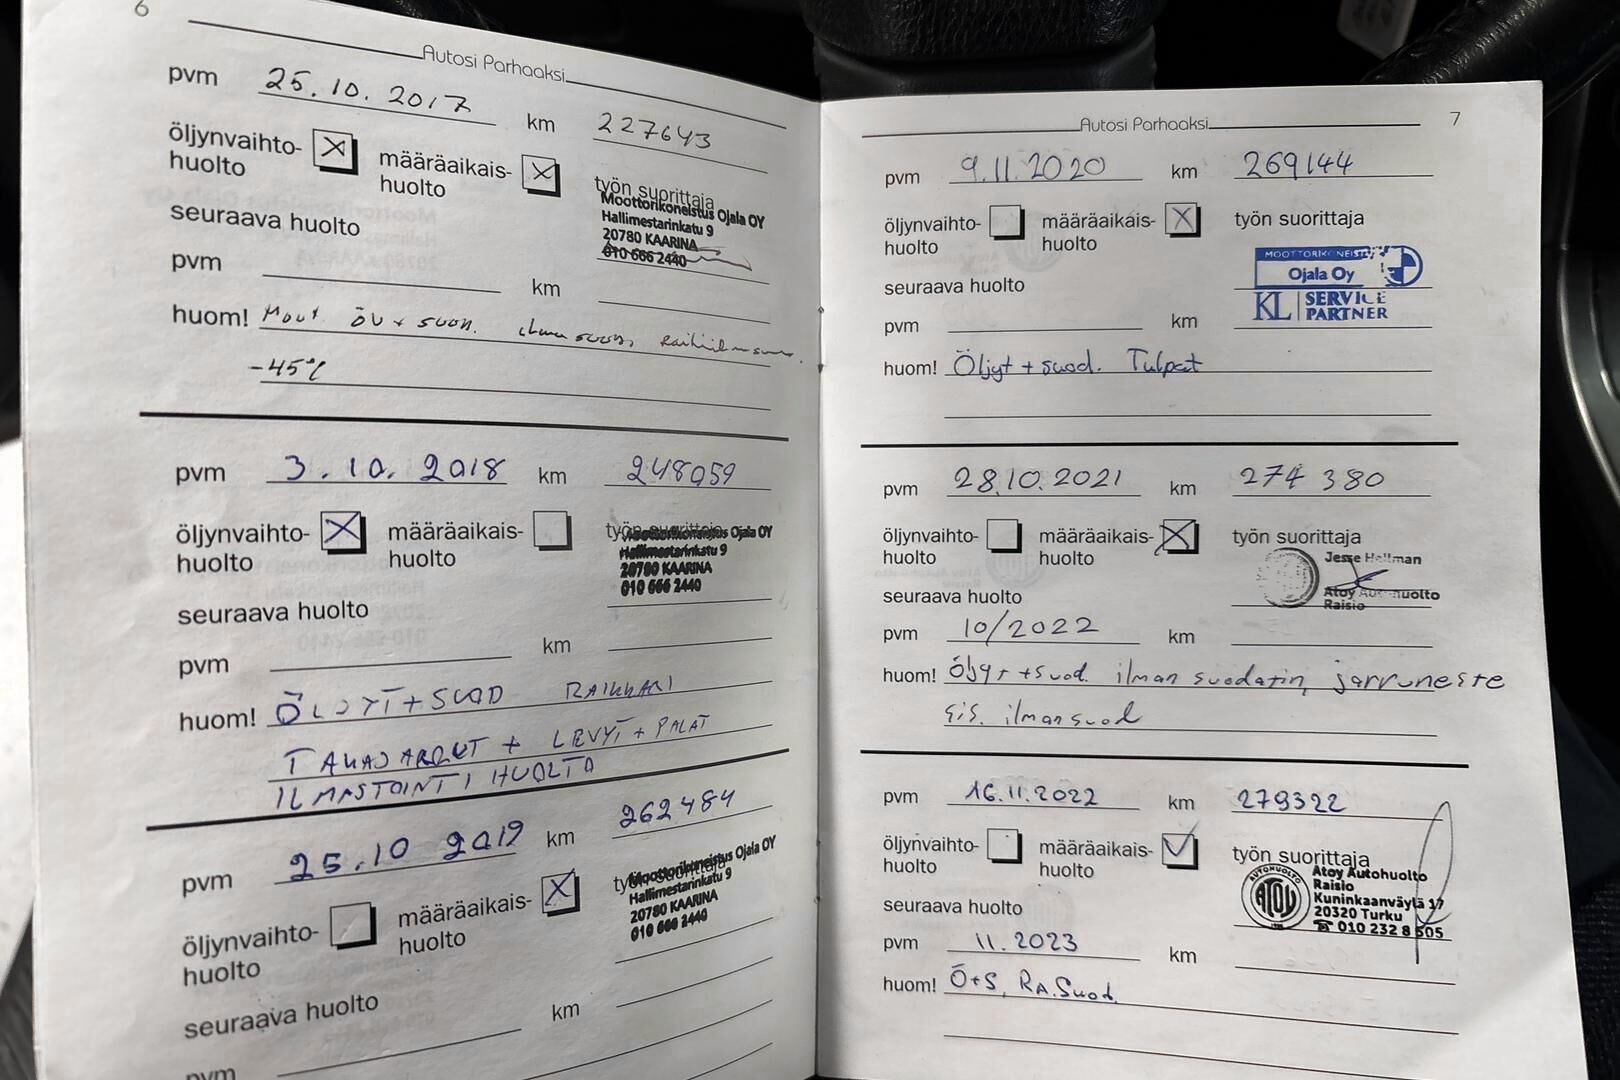 6
Autosi Parhaaksi
pvm 25.10.2017 km 227643
öljynvaihto-huolto määräaikais-huolto
työn suorittaja
Moottorikoneistus Ojala OY
Hallimestarinkatu 9
20780 KAARINA
010 666 2440
seuraava huolto
pvm km
huom! Moot öv + suod. ilma suod,
-45°C
pvm 3.10.2018 km 248059
öljynvaihto-huolto määräaikais-huolto
työn suorittaja
Moottorikoneistus Ojala OY
Hallimestarinkatu 9
20780 KAARINA
010 666 2440
seuraava huolto
pvm km
huom! ÖLJYT+SUOD RAIKKARI
TAKAJARRUT + LEVYT + PALAT
ILMASTOINTI HUOLTO
pvm 25.10 2019 km 262484
öljynvaihto-huolto määräaikais-huolto
työn suorittaja
Moottorikoneistus Ojala OY
Hallimestarinkatu 9
20780 KAARINA
010 666 2440
seuraava huolto
km
pvm
Autosi Parhaaksi
7
pvm 9.11.2020 km 269144
öljynvaihto-huolto määräaikais-huolto
työn suorittaja
MOOTTORIKONEISTUS
Ojala Oy
KL SERVICE PARTNER
seuraava huolto
pvm km
huom! Öljyt + suod. Tulpat
pvm 28.10.2021 km 274 380
öljynvaihto-huolto määräaikais-huolto
työn suorittaja
Jesse Hellman
Atoy Autohuolto
Raisio
seuraava huolto
pvm 10/2022 km
huom! Öljyt +suod. ilman suodatin, jarruneste
sis. ilmansuod
pvm 16.11.2022 km 279322
öljynvaihto-huolto määräaikais-huolto
työn suorittaja
AUTOHUOLTO
ATOY
Atoy Autohuolto
Raisio
Kuninkaanväylä 17
20320 Turku
☎ 010 232 8 505
seuraava huolto
pvm 11.2023 km
huom! Ö+S, RA.Suod.